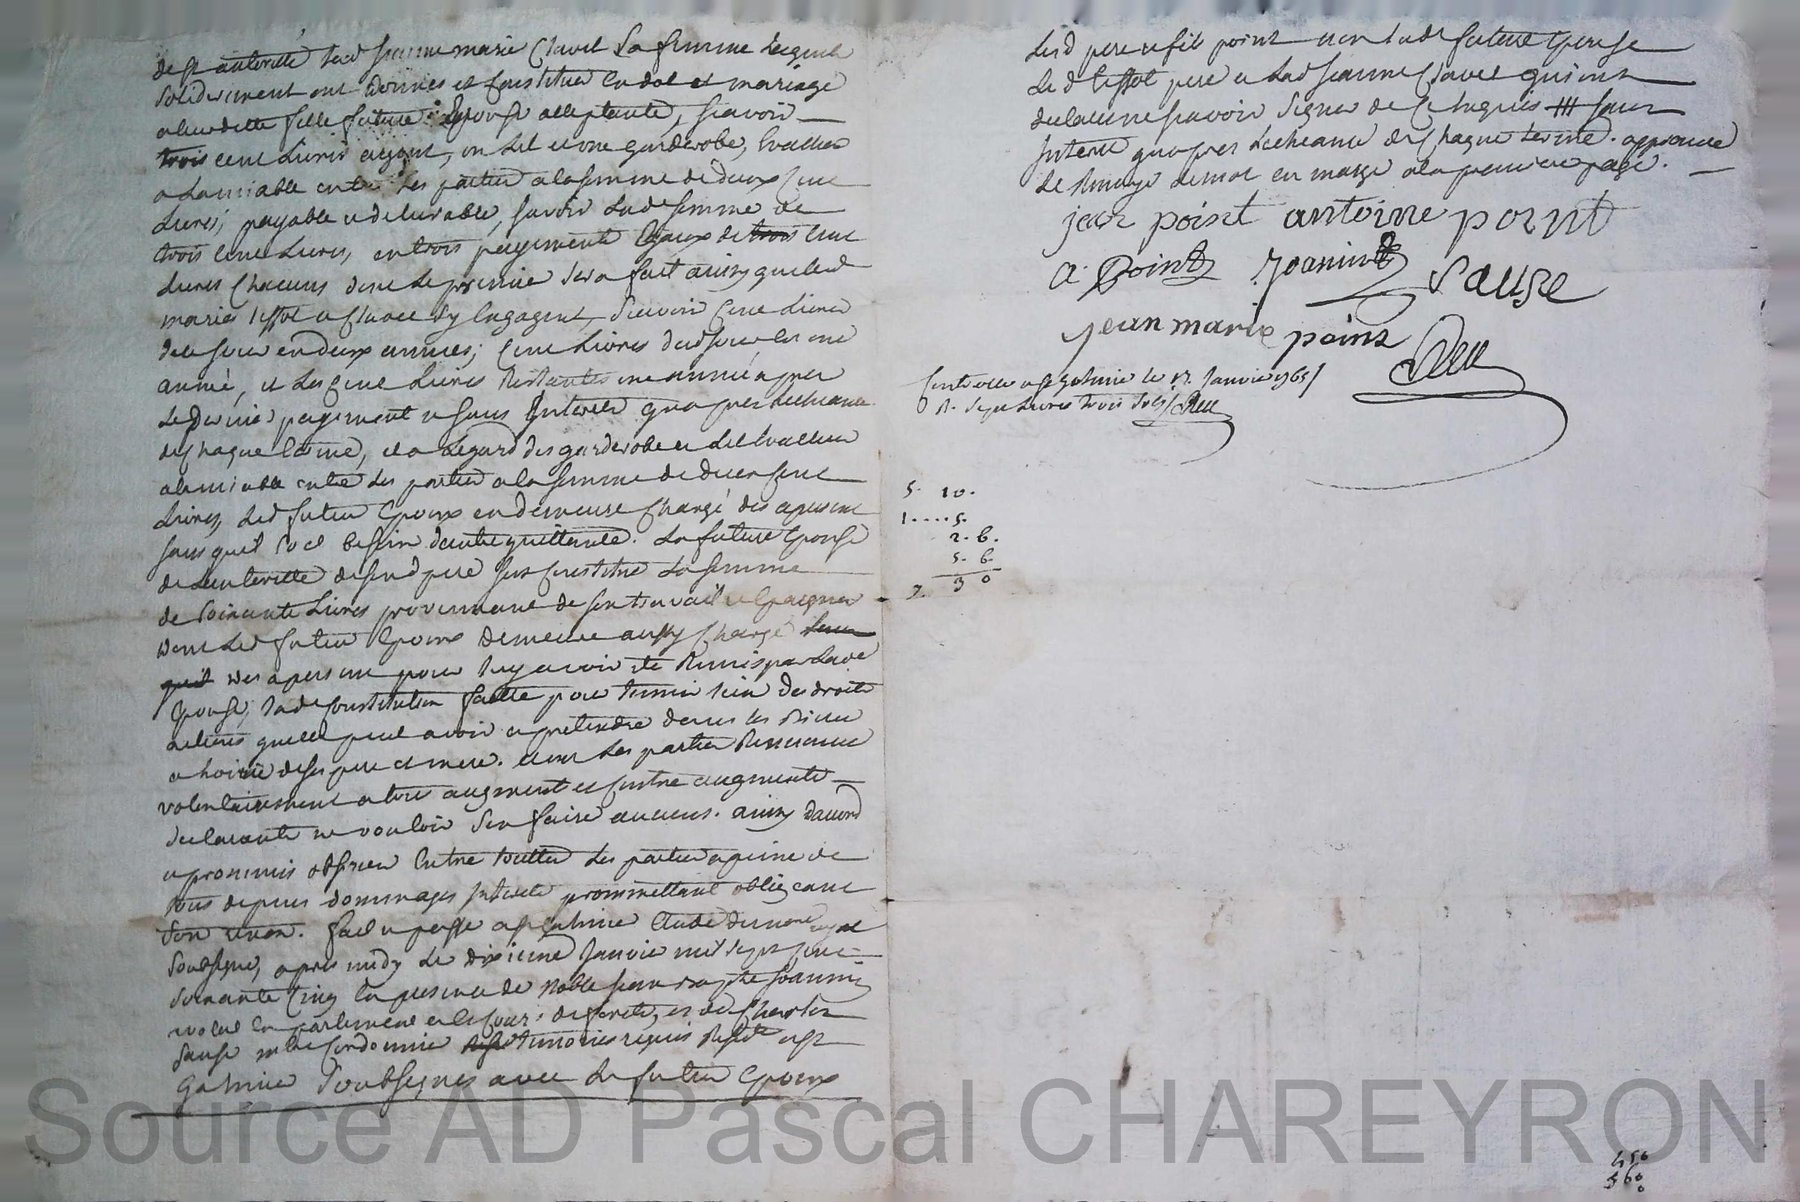 de st autorité lad jeanne marie Clavel sa femme lesquels
solidairement ont donnés et Constitué en dot et mariage
a leur dette fille future Epouse acceptante, scavoir
trois cent Livres argent, un Lit et une garderobe, Evalues
a Lamiable entre Les parties a la somme de deux Cent
Livres; payable et delivrable, savoir Lad somme de
trois cent Livres, en trois payements Egaux de trois Cent
Livres Chacuns dont Le premier sera fait ainsy que lesd
mariés tissot et Clavel sy Engagent, scavoir Cent Livres
en deux années; Cent Livres dud jour en une
année, et Les Cent Livres Restantes une année apres
Le Dernier payement et sans Interets qu'apres Lecheance
de Chaque terme, et a Legard des garderobe et Lit Evalues
a lamiable entre Les parties a la somme de deux Cent
Livres, Led futur Epoux en demeure Chargé des apresent
sans quil soit besoin dautre quittance. La future Epouse
de Lautorité de sond pere se Constitue La somme
de soixante Livres provenant de son travail et Epargnes
dont Led futur Epoux demeure aussy Chargé
des apresent pour luy avoir été Remis par Lade
Epouse, Lade Constitution faitte pour tenir lieu des droits
quelle peut avoir et pretendre dans les Biens
et hoirie de ses pere et mere. et ont Les parties Renoncé
volontairement a tous augment et Contre augments
declarants ne vouloir sen faire aucuns. ainsy daccord
et promis observer Entre touttes Les parties a peine de
tous depens dommages Interets promettant obligeant
Renon. fait et passé a st galmier Etude du nore royal
soussigné, apres midy Le dixieme Janvier mil sept Cent
soixante Cinq En presence de Noble jean baptiste Joannin
avocat En parlement et es Cours de forets, et de Charles
sauze mtre Cordonnier temoins requis Residt a st
Galmier soubsignes avec Le futur Epoux
Lesd pere et fils point non Lade future Epouse
Led tissot pere et Lad jeanne Clavel qui ont
declaré ne scavoir signer de Ce Enquis sans
Interet qu'apres Lecheance de Chaque terme. approuvé
Le Renvoy en marge a la premiere page.
jean point antoine point
a. Point Joannin Sauze
jean marie point
Controllé a st galmier le 17. Janvier 1765
R. sept Livres trois sols
5. 10.
1....5.
2. 6.
5. 6.
7. 3 0
450
560
0
Source AD Pascal CHAREYRON